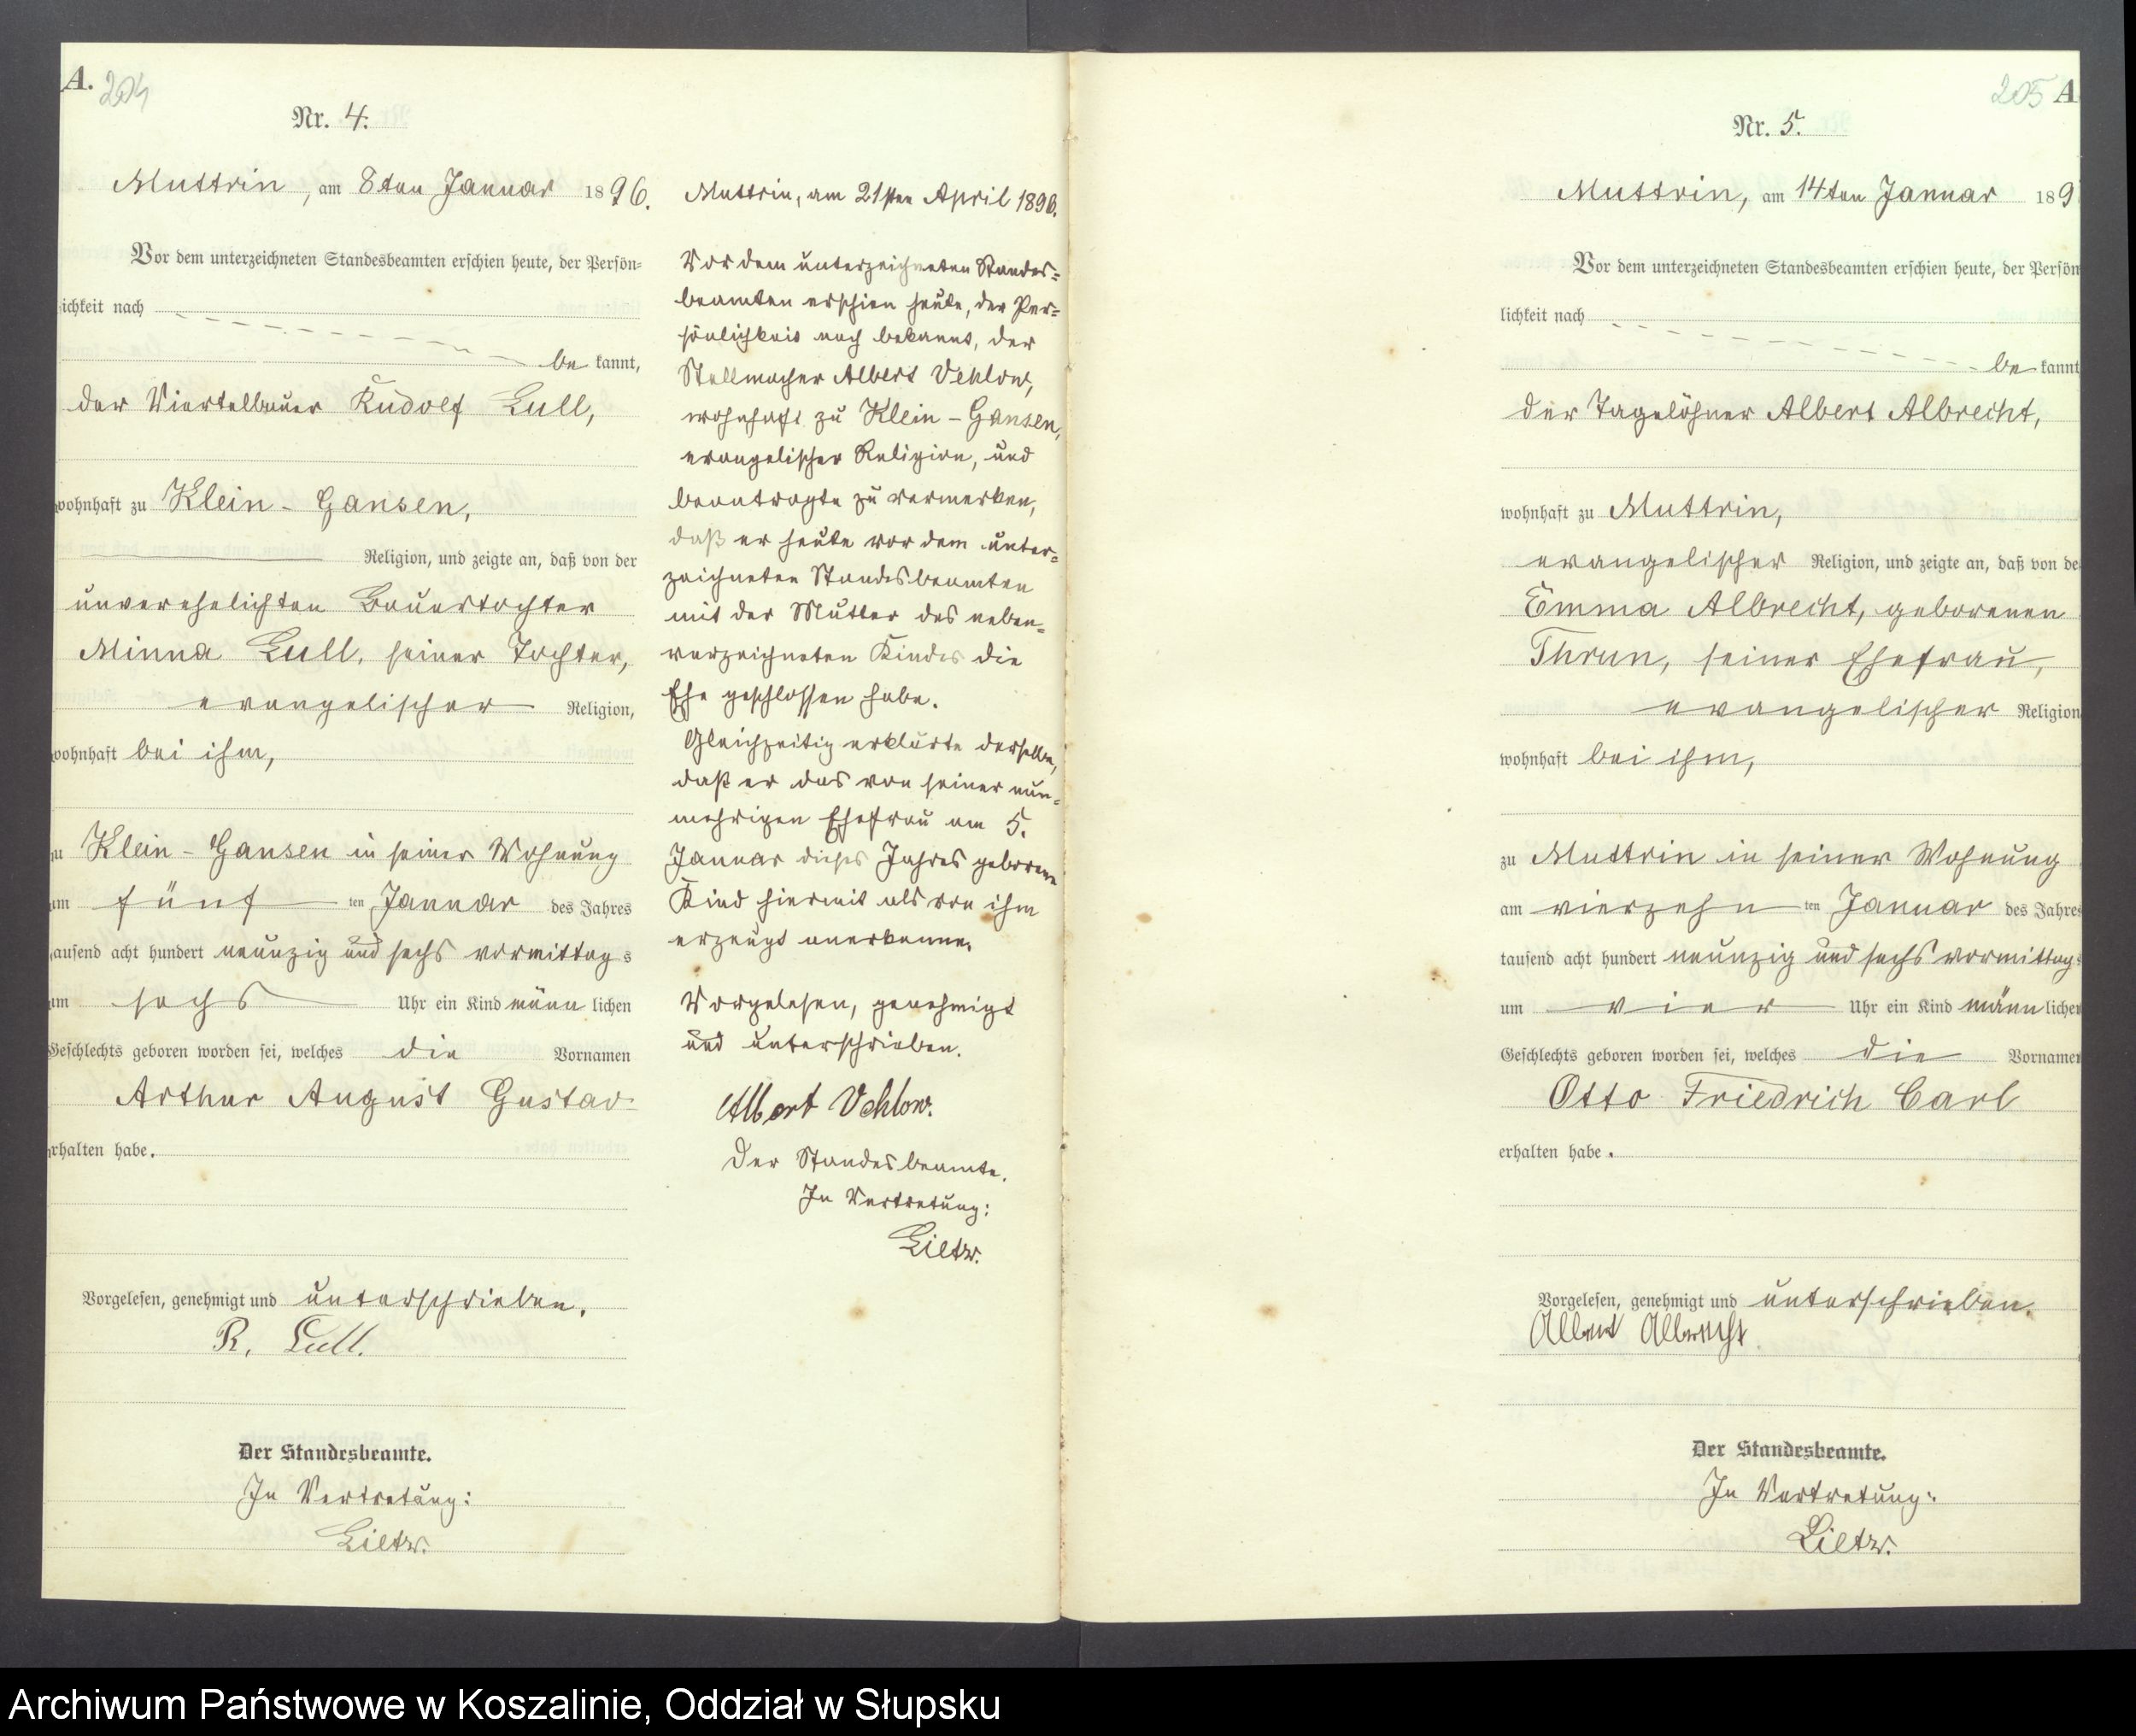 A. 204
Nr. 4.
Muttrin, am 8ten Januar 1896.
Vor dem unterzeichneten Standesbeamten erschien heute, der Persön=
lichkeit nach
be kannt,
der Viertelbauer Rudolf Lull,
wohnhaft zu Klein-Gansen,
Religion, und zeigte an, daß von der
unverehelichten Bauertochter
Minna Lull, seiner Tochter,
evangelischer Religion,
wohnhaft bei ihm,
zu Klein-Gansen in seiner Wohnung
am fünf ten Januar des Jahres
tausend acht hundert neunzig und sechs vormittags
um sechs Uhr ein Kind männ lichen
Geschlechts geboren worden sei, welches die Vornamen
Arthur August Gustav
erhalten habe.
Vorgelesen, genehmigt und unterschrieben.
R. Lull.
Der Standesbeamte.
In Vertretung:
Lietz.
Muttrin, am 21sten April 1896.
Vor dem unterzeichneten Standes=
beamten erschien heute, der Per=
sönlichkeit nach bekannt, der
Stellmacher Albert Vehlow,
wohnhaft zu Klein-Gansen,
evangelischer Religion, und
beantragte zu vermerken,
daß er heute vor dem unter=
zeichneten Standesbeamten
mit der Mutter des neben=
verzeichneten Kindes die
Ehe geschlossen habe.
Gleichzeitig erklärte derselbe,
daß er das von seiner nun=
mehrigen Ehefrau am 5.
Januar dieses Jahres geborene
Kind hiermit als von ihm
erzeugt anerkenne.
Vorgelesen, genehmigt
und unterschrieben.
Albert Vehlow.
Der Standesbeamte.
In Vertretung:
Lietz.
205 A
Nr. 5.
Muttrin, am 14ten Januar 189
Vor dem unterzeichneten Standesbeamten erschien heute, der Persön
lichkeit nach
be kannt
der Tagelöhner Albert Albrecht,
wohnhaft zu Muttrin,
evangelischer Religion, und zeigte an, daß von de
Emma Albrecht, geborenen
Thrun, seiner Ehefrau,
evangelischer Religion
wohnhaft bei ihm,
zu Muttrin in seiner Wohnung
am vierzehn ten Januar des Jahres
tausend acht hundert neunzig und sechs vormittags
um vier Uhr ein Kind männ lichen
Geschlechts geboren worden sei, welches die Vornamen
Otto Friedrich Carl
erhalten habe.
Vorgelesen, genehmigt und unterschrieben.
Albert Albrecht
Der Standesbeamte.
In Vertretung:
Lietz.
Archiwum Państwowe w Koszalinie, Oddział w Słupsku